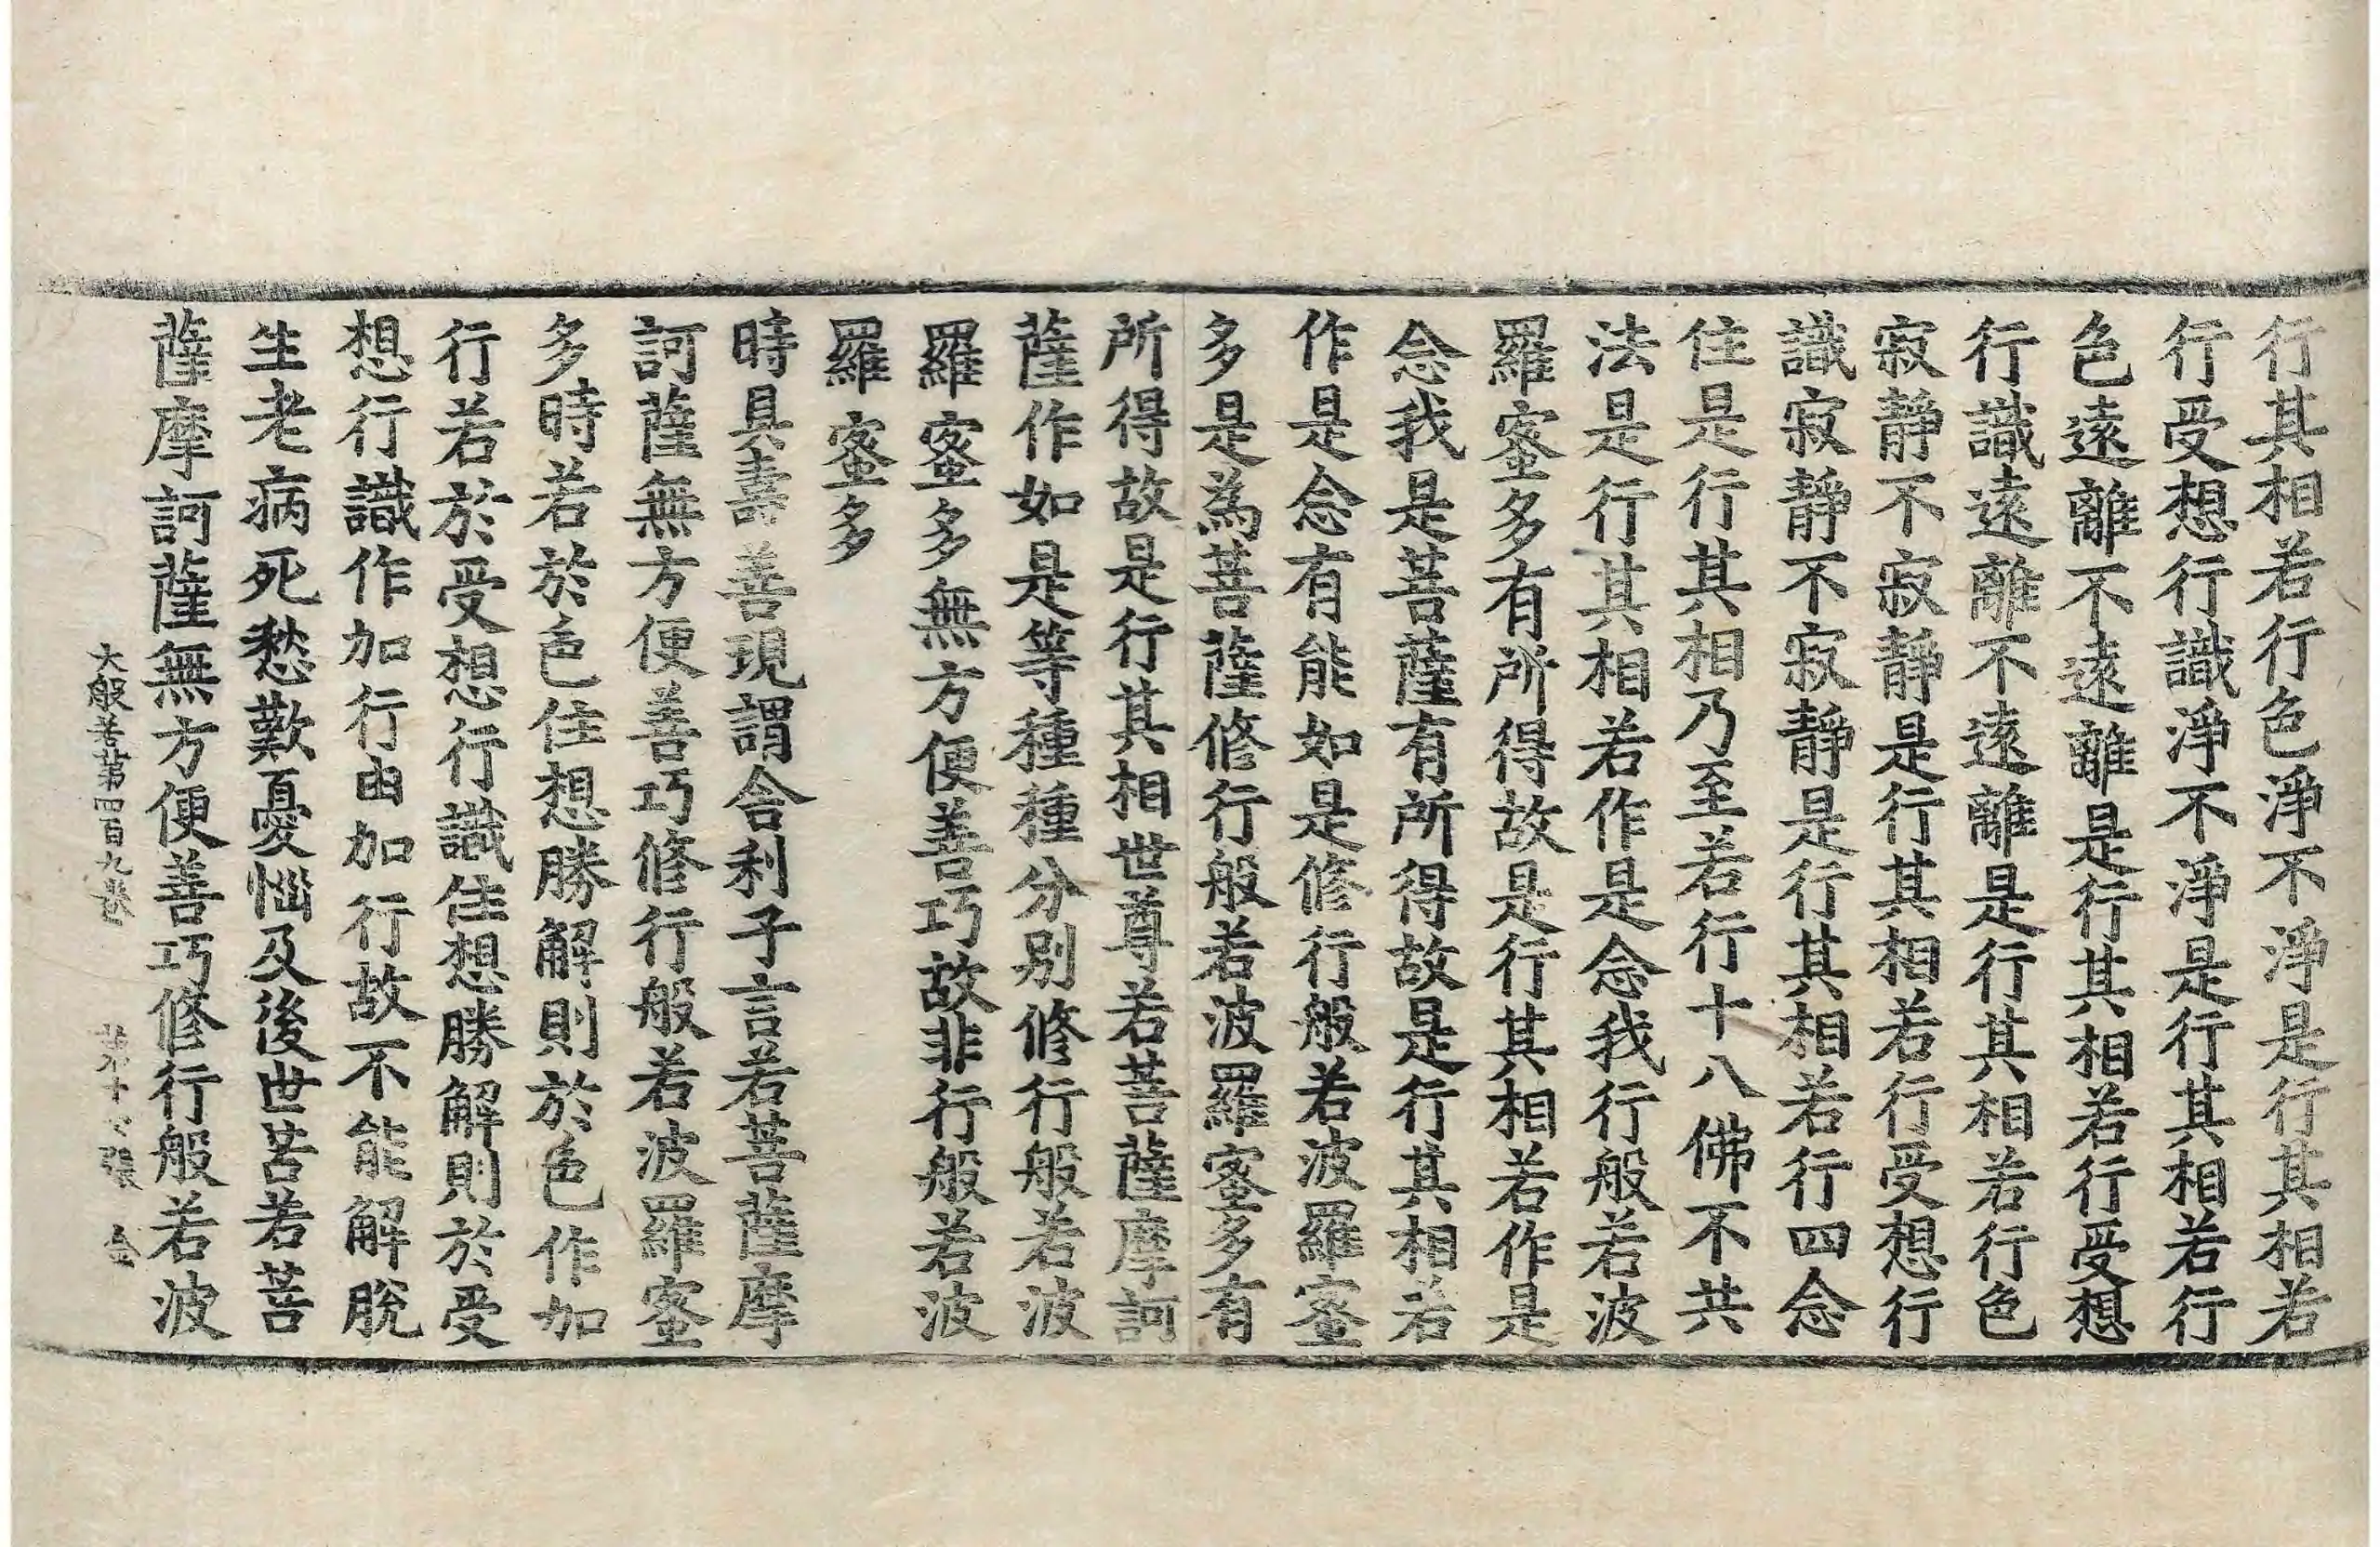 行其相若行色淨不淨是行其相若
行受想行識淨不淨是行其相若行
色遠離不遠離是行其相若行受想
行識遠離不遠離是行其相若行色
寂靜不寂靜是行其相若行受想行
識寂靜不寂靜是行其相若行四念
住是行其相乃至若行十八佛不共
法是行其相若作是念我行般若波
羅蜜多有所得故是行其相若作是
念我是菩薩有所得故是行其相若
作是念有能如是修行般若波羅蜜
多是為菩薩修行般若波羅蜜多有
所得故是行其相世尊若菩薩摩訶
薩作如是等種種分別修行般若波
羅蜜多無方便善巧故非行般若波
羅蜜多
時具壽善現謂舍利子言若菩薩摩
訶薩無方便善巧修行般若波羅蜜
多時若於色住想勝解則於色作加
行若於受想行識住想勝解則於受
想行識作加行由加行故不能解脫
生老病死愁歎憂惱及後世苦若菩
薩摩訶薩無方便善巧修行般若波
大般若第四百九卷 第十 張